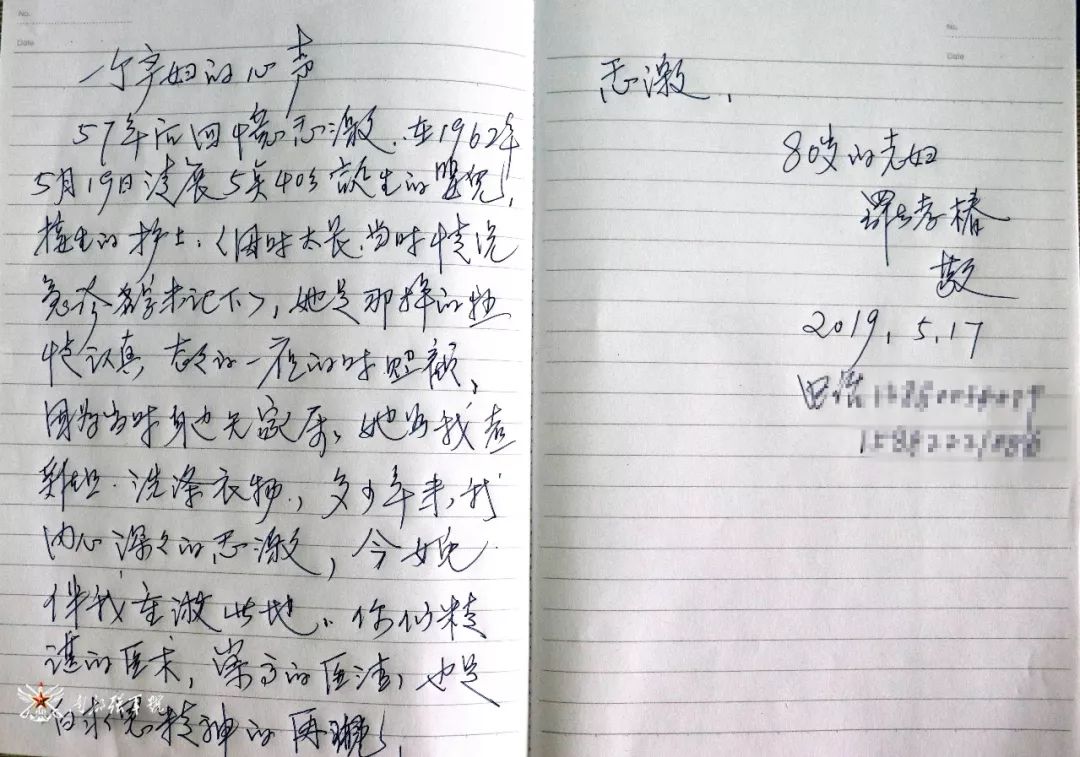 No.
Date
一个产妇的心声
57年后回忆感激，在1962年
5月19日凌晨5点40分诞生的婴儿，
接生的护士：（因时太长，当时情况
急诊 未记下），她是那样的热
情认真，一夜的时照顾，
因为当时身边无家属，她为我煮
鸡蛋、洗涤衣物，多少年来，我
内心深深的感激，今女儿
伴我重游此地。你们精
湛的医术，崇高的医德，也是
白求恩精神的再现，
No.
Date
感激，
80岁的老妇
孝椿
敬
2019.5.17
电话